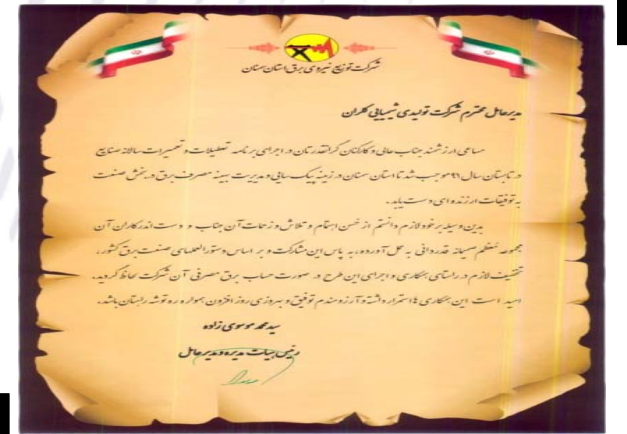 شرکت توزیع نیروی برق استان سمنان
مدیرعامل محترم شرکت تولیدی شیمیایی کلران
مساعی ارزشمند جنابعالی و کارکنان گرانقدرتان در اجرای برنامه تعطیلات و تعمیرات سالانه صنایع
در تابستان سال ۹۱ موجب شد تا استان سمنان در زمینه پیک سایی و مدیریت بهینه مصرف برق در بخش صنعت
به توفیقات ارزنده ای دست یابد.
بدین وسیله بر خود لازم دانستم از حسن اهتمام و تلاش و زحمات آن جناب و دست اندرکاران آن
مجموعه معظم صمیمانه قدردانی به عمل آورده، به پاس این مشارکت و بر اساس دستورالعملهای صنعت برق کشور،
تخفیف لازم در راستای همکاری و اجرای این طرح در صورت حساب برق مصرفی آن شرکت لحاظ گردید.
امید است این همکاری ها استمرار داشته و آرزومندم توفیق و بهروزی روز افزون همواره ره توشه راهتان باشد.
سید محمد موسوی زاده
رئیس هیات مدیره و مدیرعامل